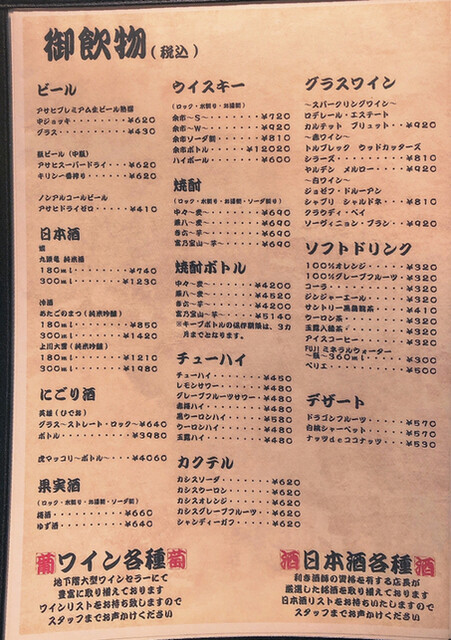 御飲物(税込)
ビール
アサヒプレミアム生ビール熟撰
中ジョッキ・・・・・・¥620
グラス・・・・・・・・¥430
瓶ビール(中瓶)
アサヒスーパードライ・・・¥620
キリン一番搾り・・・・・¥620
ノンアルコールビール
アサヒドライゼロ・・・・・¥410
日本酒
燗
九頭竜 純米酒
180ml・・・・・・¥740
300ml・・・・・・¥1230
冷酒
あたごのまつ(純米吟醸)
180ml・・・・・・¥850
300ml・・・・・・¥1420
上川大雪(純米吟醸)
180ml・・・・・・¥1210
300ml・・・・・・¥1980
にごり酒
英雄(ひでお)
グラス~ストレート・ロック~¥640
ボトル・・・・・・・・¥3980
虎マッコリ~ボトル~・・・¥4060
果実酒
(ロック・水割り・お湯割・ソーダ割)
梅酒・・・・・・・・・¥660
ゆず酒・・・・・・・・¥640
ウイスキー
(ロック・水割・お湯割)
余市~S~・・・・・・・¥720
余市~W~・・・・・・・¥920
余市ソーダ割・・・・・・¥810
余市ボトル・・・・・・¥12020
ハイボール・・・・・・・¥600
焼酎
(ロック・水割り・お湯割り・ソーダ割り)
中々~麦~・・・・・・・¥690
㐂八~麦~・・・・・・・¥690
吉六~芋~・・・・・・・¥690
富乃宝山~芋~・・・・・¥690
焼酎ボトル
中々~麦~・・・・・・¥4200
㐂八~麦~・・・・・・¥4520
吉六~芋~・・・・・・¥4200
富乃宝山~芋~・・・・¥5140
※キープボトルの保存期限は、3カ
月までとなります。
チューハイ
チューハイ・・・・・・・¥450
レモンサワー・・・・・・¥480
グレープフルーツサワー・・¥480
赤梅ハイ・・・・・・・・¥480
黒ウーロンハイ・・・・・¥580
ウーロンハイ・・・・・・¥480
玉露ハイ・・・・・・・・¥480
カクテル
カシスソーダ・・・・・・¥620
カシスウーロン・・・・・¥620
カシスオレンジ・・・・・¥620
カシスグレープフルーツ・・¥620
シャンディーガフ・・・・¥620
グラスワイン
~スパークリングワイン~
ロデレール・エステート
カルテット ブリュット・・¥920
~赤ワイン~
トルブレック ウッドカッターズ
シラーズ・・・・・・・・¥810
ヤルデン メルロー・・・・¥920
~白ワイン~
ジョゼフ・ドルーアン
シャブリ シャルドネ・・・¥810
クラウディ・ベイ
ソーヴィニョン・ブラン・・¥920
ソフトドリンク
100%オレンジ・・・・・¥320
100%グレープフルーツ・・¥320
コーラ・・・・・・・・・¥320
ジンジャーエール・・・・¥320
サントリー黒烏龍茶・・・¥410
ウーロン茶・・・・・・・¥320
玉露入緑茶・・・・・・・¥320
アイスコーヒー・・・・・¥320
FUJIミネラルウォーター
~瓶~360ml・・・・・¥300
ペリエ・・・・・・・・・¥500
デザート
ドラゴンフルーツ・・・・¥570
白桃シャーベット・・・・¥570
ナッツdeココナッツ・・・¥530
葡ワイン各種萄
地下階大型ワインセラーにて
豊富に取り揃えております
ワインリストをお持ち致しますので
スタッフまでお声かけください
酒日本酒各種酒
利き酒師の資格を有する店長が
厳選した銘酒を取り揃えております
日本酒リストをお持ちいたしますので
スタッフまでお声かけください